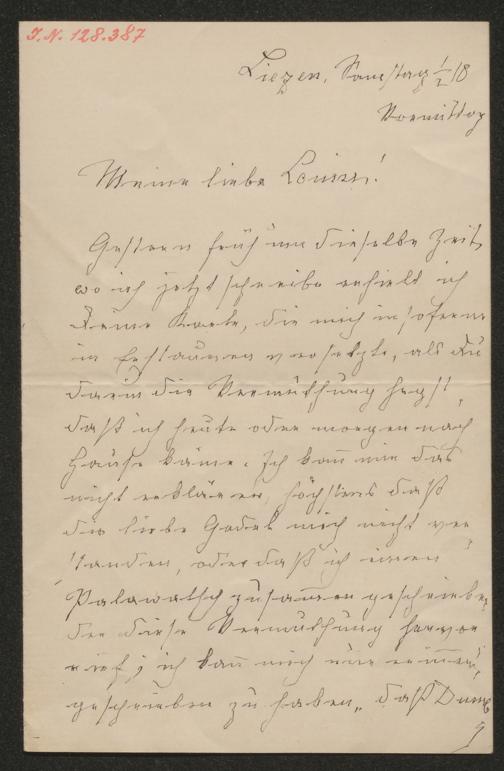 I.N. 128.387
Liezen, Samstag 1/2 18
Vormittag
Meine liebe Louise!
Gestern früh um dieselbe Zeit,
wo ich jetzt schreibe erhielt ich
Deine Karte, die mich insoferne
in Erstaunen versetzte, als Du
darin die Vermuthung hegst,
daß ich heute oder morgen nach
Hause käme. Ich kann mir das
nicht erklären, höchstens daß
die liebe Godel mich nicht ver-
standen, oder daß ich einen
Palawatsch zusammengeschrieben,
der diese Vermuthung hervor-
rief; ich kann mich nur erinnern,
geschrieben zu haben, „daß